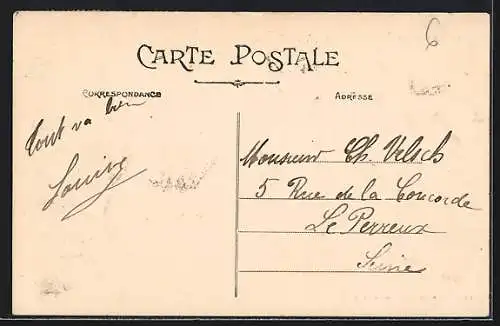 6
CARTE POSTALE
CORRESPONDANCE
ADRESSE
Tout va bien
Louise
Monsieur Ch. Velsch
5 Rue de la Concorde
Le Perreux
Seine